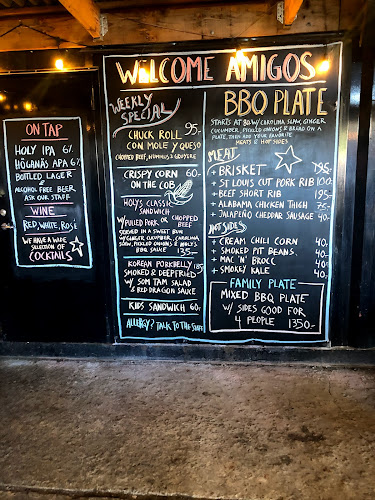 WELCOME AMIGOS
ON TAP
HOLY IPA 6%
HÖGANÄS APA 6%
BOTTLED LAGER
ALCOHOL FREE BEER
ASK OUR STAFF
WINE
RED, WHITE, ROSE
WE HAVE A WIDE
SELECTION OF
COCKTAILS
WEEKLY
SPECIAL
CHUCK ROLL 95:-
CON MOLE Y QUESO
CHOPPED BEEF, HUMMUS & GRUYERE
CRISPY CORN 60:-
ON THE COB
HOLY'S CLASSIC
SANDWICH
W/ PULLED PORK OR CHOPPED
BEEF
SERVED IN A SWEET BUN
W/ GINGER CUCUMBER, CAROLINA
SLAW, PICKLED ONIONS & HOLY'S
BBQ SAUCE 135:-
KOREAN PORKBELLY
SMOKED & DEEPFRIED
W/ SOM TAM SALAD
& RED DRAGON SAUCE
KIDS SANDWICH 60:-
ALLERGY? TALK TO THE STAFF
BBQ PLATE
STARTS AT 80 W/ CAROLINA SLAW, GINGER
CUCUMBER, PICKLED ONIONS & BREAD ON A
PLATE, THEN ADD YOUR FAVORITE
MEATS & HOT SIDES
MEAT
+ BRISKET 195:-
+ ST LOUIS CUT PORK RIB 100:-
+ BEEF SHORT RIB 195:-
+ ALABAMA CHICKEN THIGH 75:-
+ JALAPEÑO CHEDDAR SAUSAGE 40:-
HOT SIDES
+ CREAM CHILI CORN 40:-
+ SMOKED PIT BEANS 40:-
+ MAC 'N' BROCC 40:-
+ SMOKEY KALE 40:-
FAMILY PLATE
MIXED BBQ PLATE
W/ SIDES GOOD FOR
4 PEOPLE 1350:-